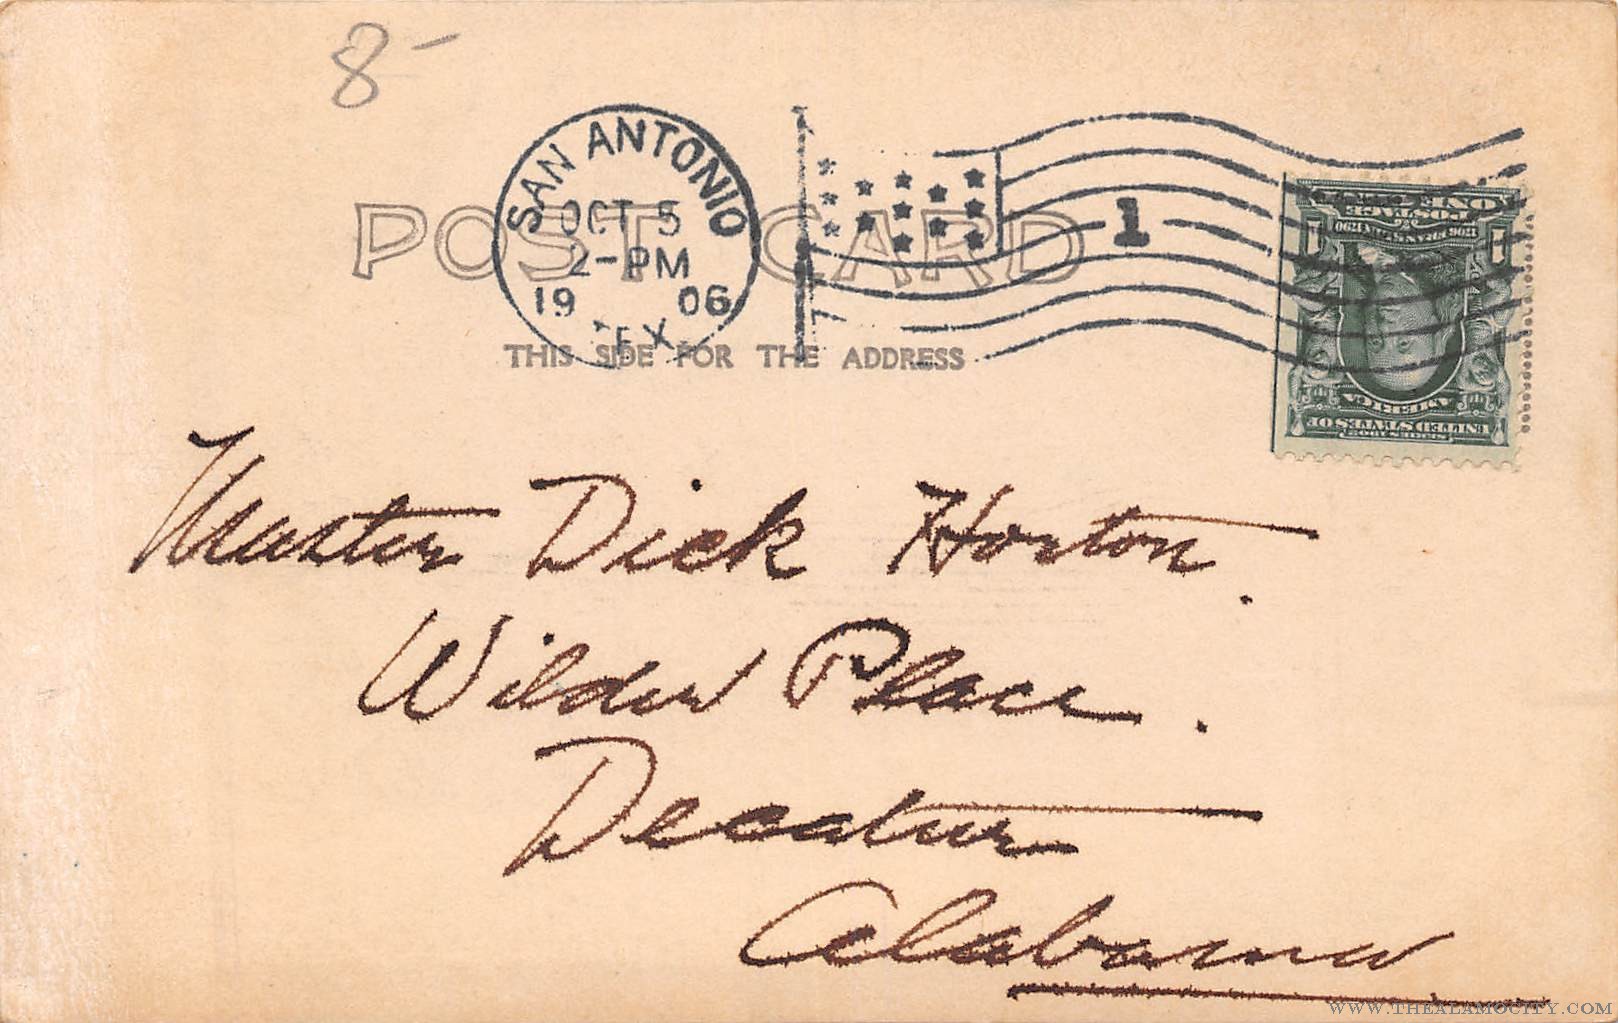 8-
SAN ANTONIO
OCT 5
2-PM
19 06
TEX
1
POST CARD
THIS SIDE FOR THE ADDRESS
ONE
POSTAGE
1706 FRANKLIN 1790
1 1
AMERICA
UNITED STATES OF
SERIES 1902
Master Dick Horton.
Wilder Place.
Decatur
Alabama
WWW.THEALAMOCITY.COM